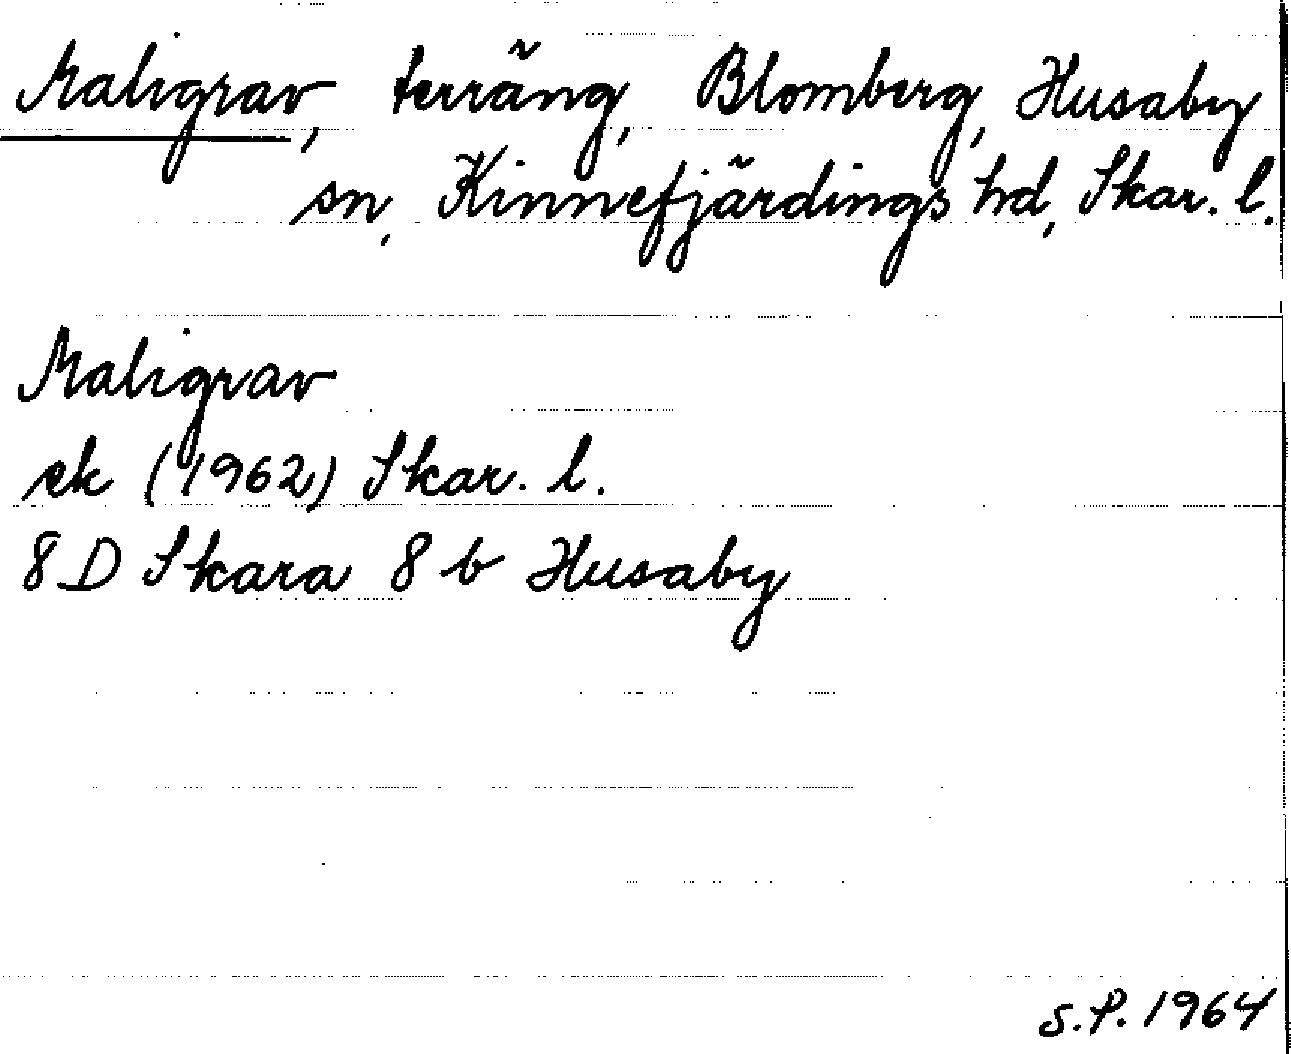 Maligrav, terräng, Blomberg, Husaby
sn, Kinnefjärdings hd, Skar. l.
Maligrav
ek (1962) Skar. l.
8 D Skara 8 b Husaby
S.P. 1964